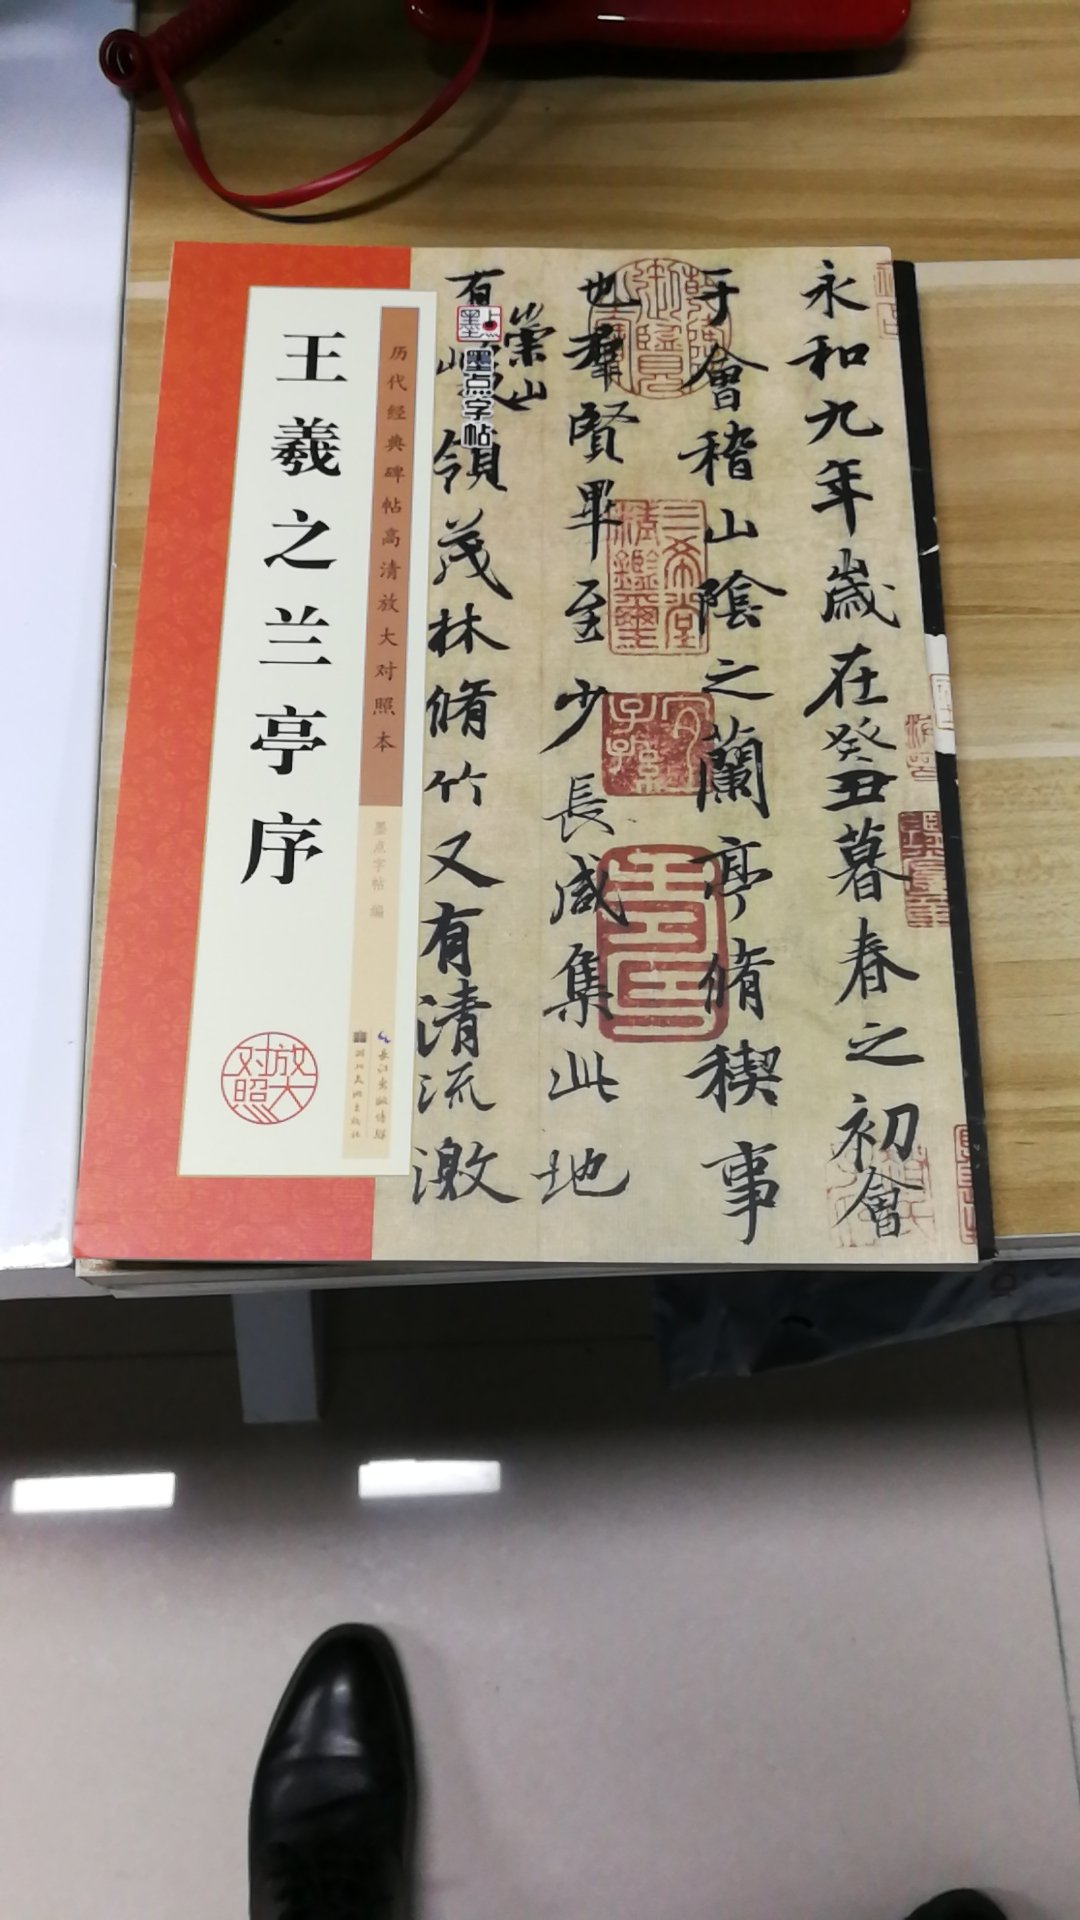 永和九年歲在癸丑暮春之初會
于會稽山陰之蘭亭脩稧事
也羣賢畢至少長咸集此地
有
崇山
領茂林脩竹又有清流激
墨点
墨点字帖
历代经典碑帖高清放大对照本
王羲之兰亭序
墨点字帖 编
长江出版传媒
湖北美术出版社
放大
对照